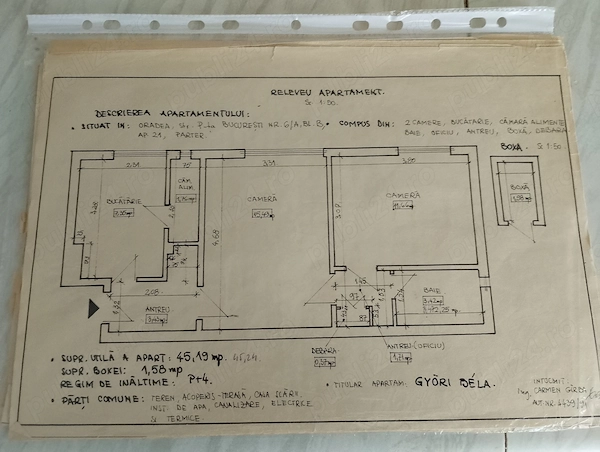 RELEVEU APARTAMENT.
Sc 1:50.
DESCRIEREA APARTAMENTULUI:
• SITUAT IN: ORADEA, Str. P-ta BUCUREȘTI NR. 6/A, BL. B,
AP. 21, PARTER.
• COMPUS DIN: 2 CAMERE, BUCĂTĂRIE, CĂMARĂ ALIMENTE
BAIE, OFICIU, ANTREU, BOXĂ, DEBARA
BOXA. Sc 1:50
2.31
70
3.71
3.80
CĂM.
ALIM.
BUCĂTĂRIE
CAMERĂ
CAMERĂ
BOXĂ
1,58 mp
4.68
3.08
2.08
1.45
97
BAIE
3,42 mp
ANTREU
DEBARA
ANTREU (OFICIU)
• SUPR. UTILĂ A APART: 45,19 mp. 45,24
SUPR. BOXEI: 1,58 mp
REGIM DE INĂLTIME: P+4.
• PĂRȚI COMUNE: TEREN, ACOPERIȘ-TERASĂ, CASA SCĂRII,
INST. DE APA, CANALIZARE, ELECTRICE
SI TERMICE.
• TITULAR APARTAM. GYÖRI BÉLA.
INTOCMIT:
Ing. CARMEN